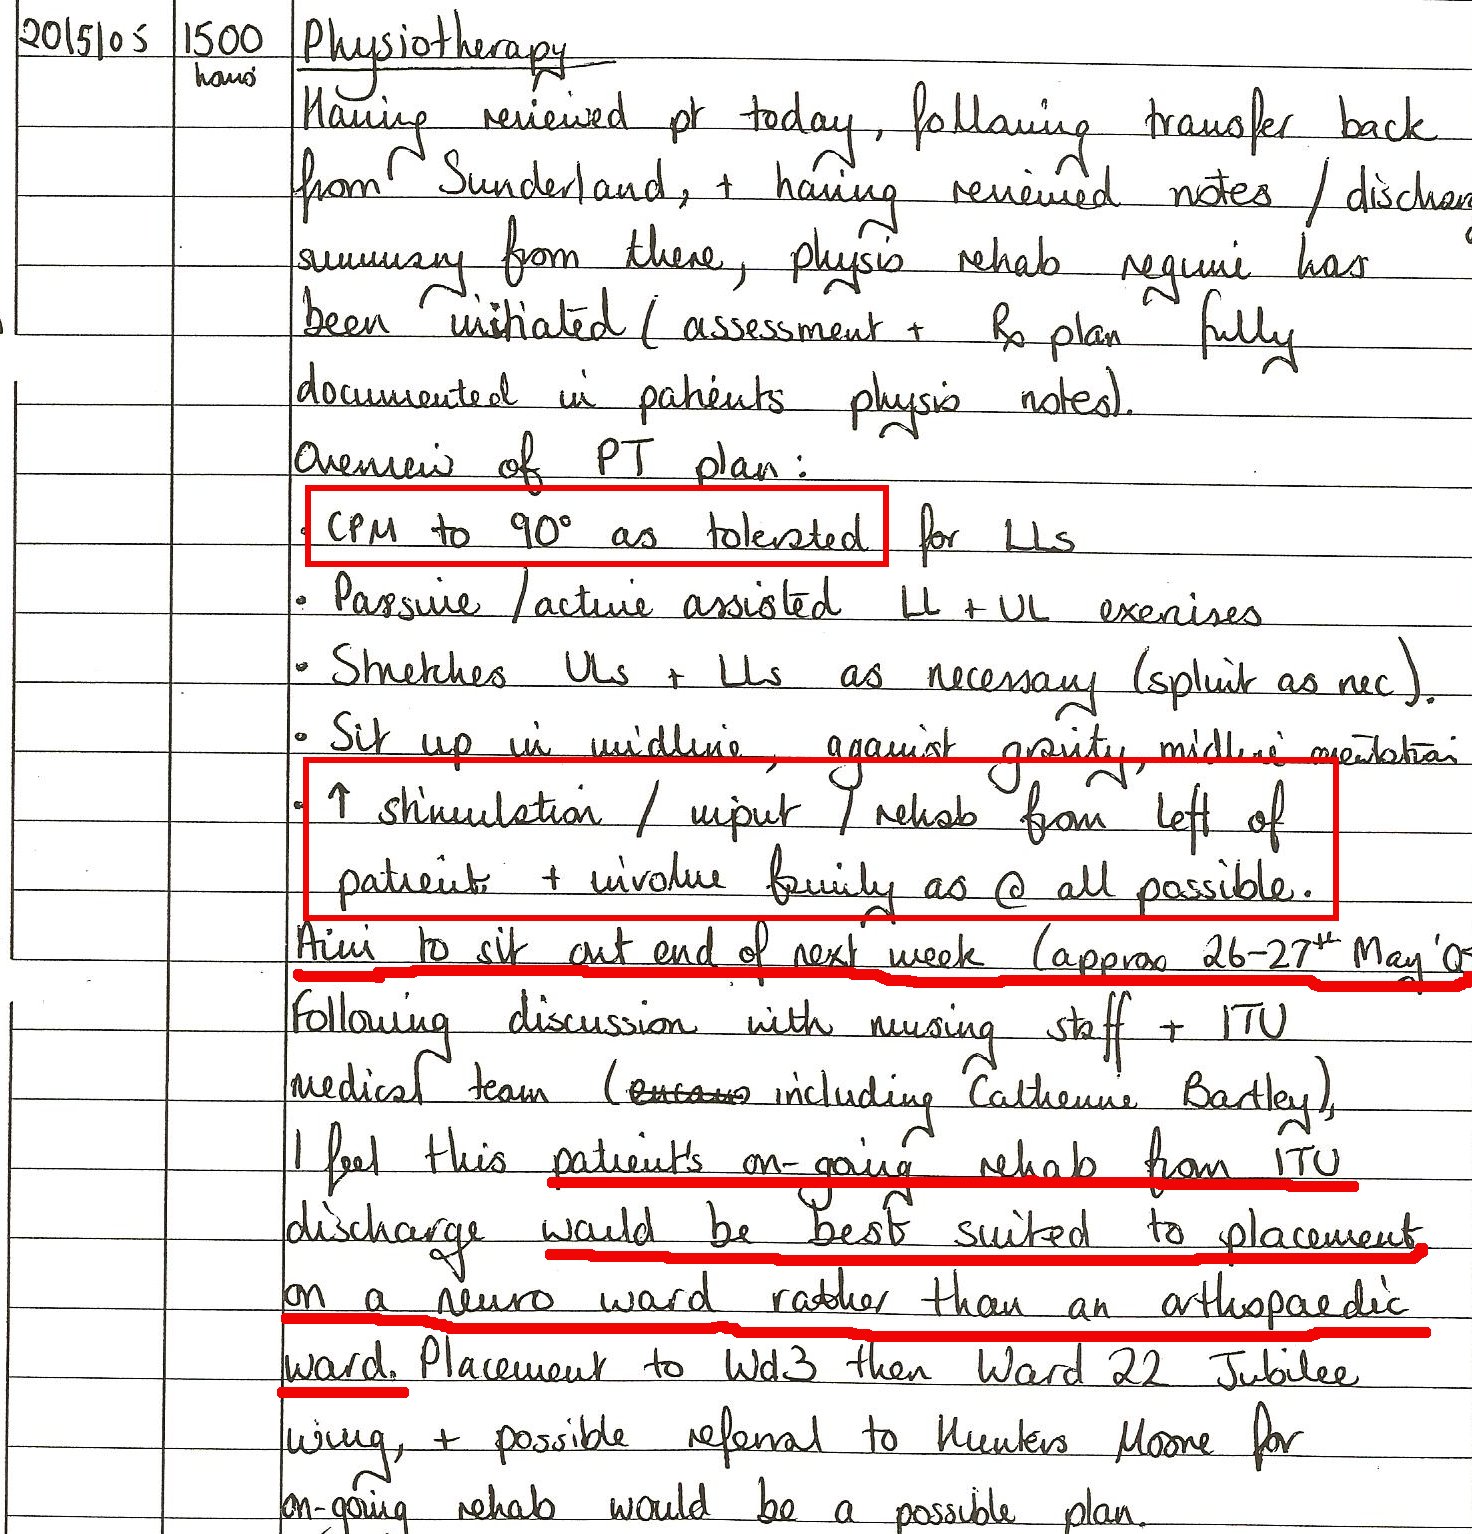 20/5/05 1500 Physiotherapy
hours
Having reviewed pt today, following transfer back
from Sunderland, + having reviewed notes / dischar
summary from there, physio rehab regime has
been initiated ( assessment + Rx plan fully
documented in patients physio notes).
Overview of PT plan:
• CPM to 90° as tolerated for LLs
• Passive /active assisted LL + UL exercises
• Stretches ULs + LLs as necessary (splint as nec).
• Sit up in midline, against gravity, midline orientation
• ↑ stimulation / input / rehab from left of
patient + involve family as @ all possible.
Aim to sit out end of next week (approx 26-27th May '05
Following discussion with nursing staff + ITU
medical team ( including Catherine Bartley),
I feel this patient's on-going rehab from ITU
discharge would be best suited to placement
on a neuro ward rather than an orthopaedic
ward. Placement to Wd3 then Ward 22 Jubilee
wing, + possible referral to Hunters Moore for
on-going rehab would be a possible plan.